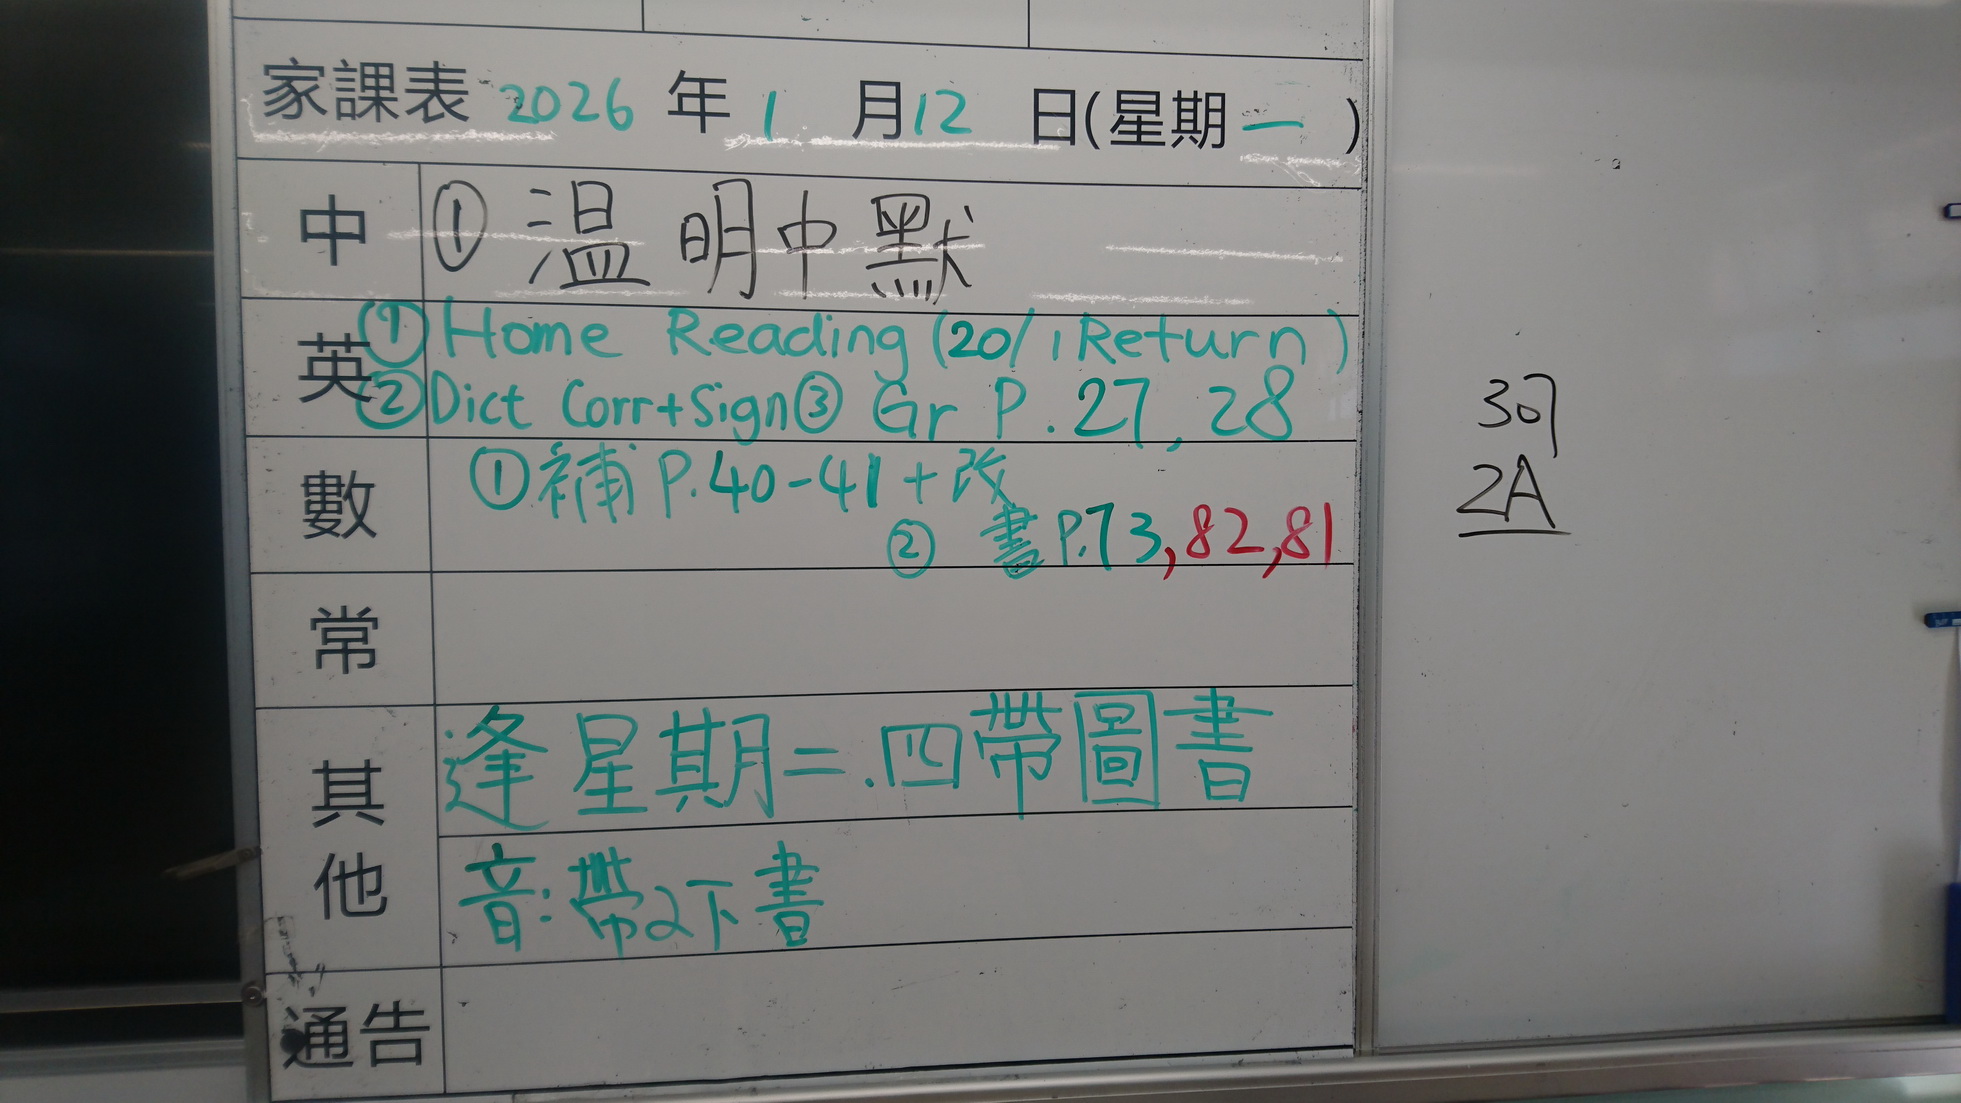 家課表 2026 年 1 月 12 日(星期一)
中 ① 温 明中默
英 ① Home Reading (20/1 Return)
② Dict Corr+Sign ③ Gr P.27, 28
數 ① 補 P.40-41 + 改
② 書 P.73, 82, 81
常
其他 逢星期二.四帶圖書
音:帶2下書
通告
2A